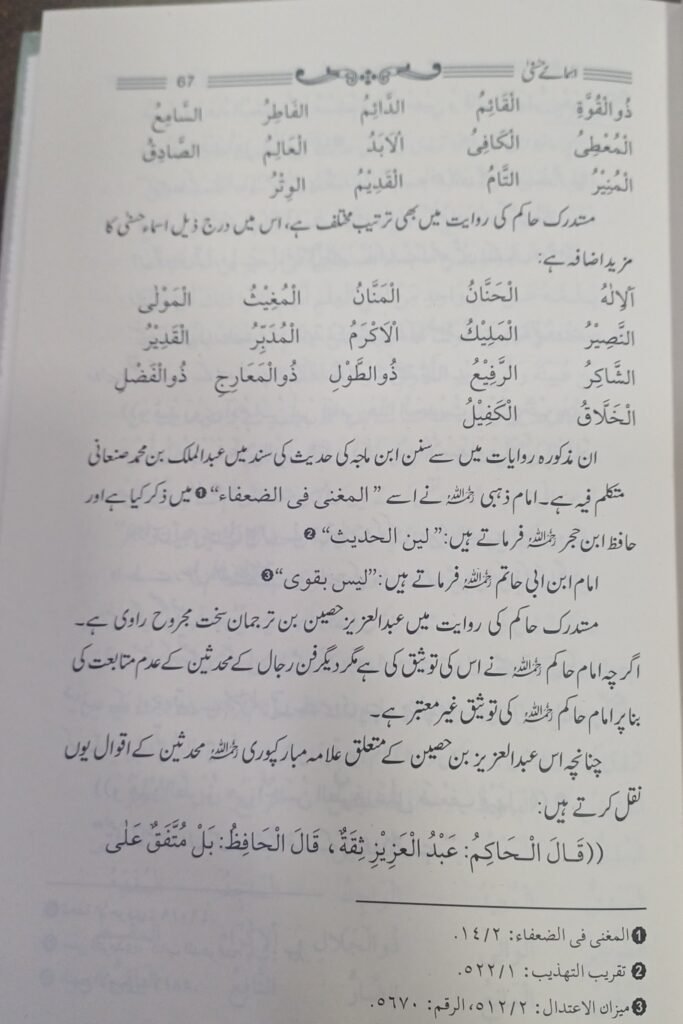 اسمائے حسنٰی 67
ذُوالْقُوَّةِ الْقَائِمُ الدَّائِمُ الْفَاطِرُ السَّامِعُ
الْمُعْطِیُ الْكَافِیُ الْاَبَدُ الْعَالِمُ الصَّادِقُ
الْمُنِيْرُ التَّامُ الْقَدِيْمُ الْوِتْرُ
مستدرک حاکم کی روایت میں بھی ترتیب مختلف ہے، اس میں درج ذیل اسماء حسنٰی کا
مزید اضافہ ہے:
اَلْاِلٰهُ الْحَنَّانُ الْمَنَّانُ الْمُغِيْثُ الْمَوْلٰی
النَّصِيْرُ الْمَلِيْكُ الْاَكْرَمُ الْمُدَبِّرُ الْقَدِيْرُ
الشَّاكِرُ الرَّفِيْعُ ذُوالطَّوْلِ ذُوالْمَعَارِجِ ذُوالْفَضْلِ
الْخَلَّاقُ الْكَفِيْلُ
ان مذکورہ روایات میں سے سنن ابن ماجہ کی حدیث کی سند میں عبدالملک بن محمد صنعانی
متکلم فیہ ہے۔ امام ذہبی رحمہ اللہ نے اسے ”المغنی فی الضعفاء“ ❶ میں ذکر کیا ہے اور
حافظ ابن حجر رحمہ اللہ فرماتے ہیں: ”لین الحدیث“ ❷
امام ابن ابی حاتم رحمہ اللہ فرماتے ہیں: ”لیس بقوی“ ❸
مستدرک حاکم کی روایت میں عبدالعزیز حصین بن ترجمان سخت مجروح راوی ہے۔
اگرچہ امام حاکم رحمہ اللہ نے اس کی توثیق کی ہے مگر دیگر فن رجال کے محدثین کے عدم متابعت کی
بنا پر امام حاکم رحمہ اللہ کی توثیق غیر معتبر ہے۔
چنانچہ اس عبدالعزیز بن حصین کے متعلق علامہ مبارکپوری رحمہ اللہ محدثین کے اقوال یوں
نقل کرتے ہیں:
((قَالَ الْحَاكِمُ: عَبْدُ الْعَزِيْزِ ثِقَةٌ، قَالَ الْحَافِظُ: بَلْ مُتَّفَقٌ عَلٰى
❶ المغنی فی الضعفاء: ۱۴/۲.
❷ تقریب التهذیب: ۵۲۲/۱.
❸ میزان الاعتدال: ۵۱۲/۲، الرقم: ۵۶۷۰.